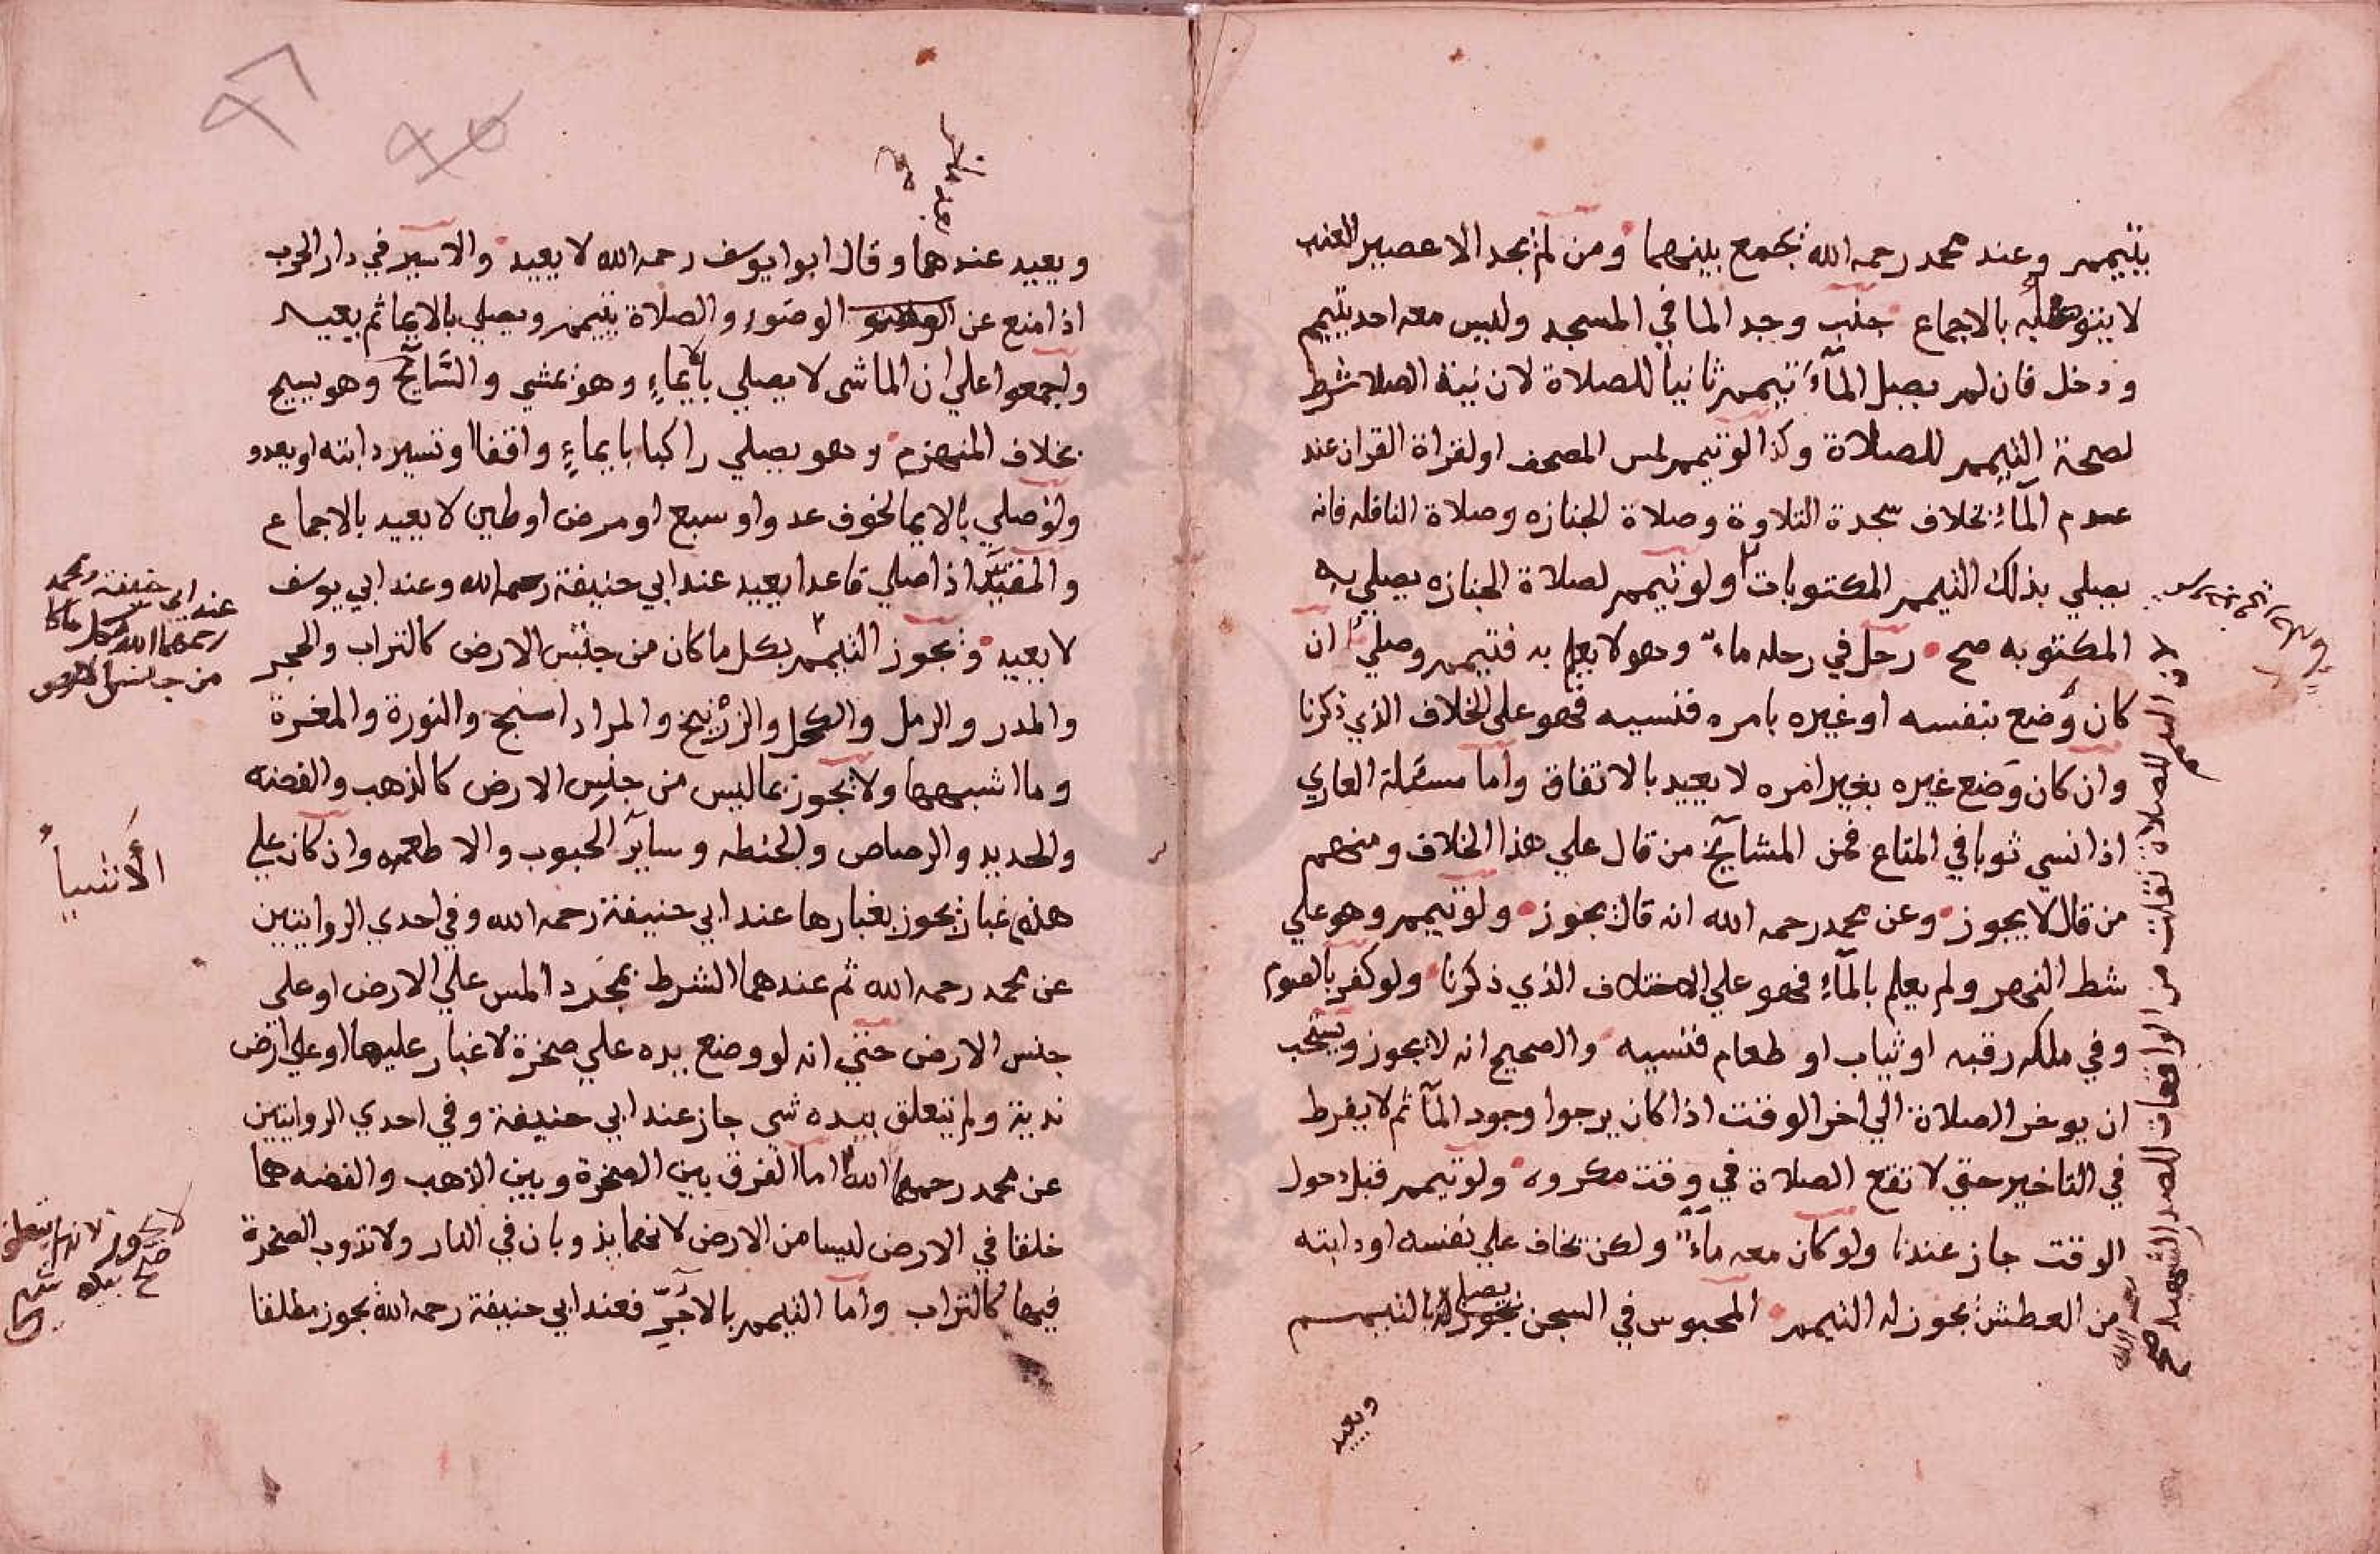 يتيمم وعند محمد رحمه الله يجمع بينهما ومن لم يجد الا عصير العنب
لا يتوضا به بالاجماع جنب وجد الما في المسجد وليس معه احد يتيمم
ودخل فان لم يصل المآء تيمم ثانيا للصلاة لان نية الصلا شرط
لصحة التيمم للصلاة وكذا لو تيمم لمس المصحف او لقراة القران عند
عدم المآء بخلاف سجدة التلاوة وصلاة الجنازه وصلاة النافله فانه
يصلي بذلك التيمم المكتوبات ولو تيمم لصلاة الجنازه يصلي به
المكتوبه صح رجل في رحله ماء وهو لا يعلم به فتيمم وصلي ان
كان وضع بنفسه او غيره بامره فنسيه فهو على الخلاف الذي ذكرنا
وان كان وضع غيره بغير امره لا يعيد بالاتفاق واما مسئلة العاري
اذا نسي ثوبا في المتاع فمن المشايخ من قال علي هذا الخلاف ومنهم
من قال لا يجوز وعن محمد رحمه الله انه قال يجوز ولو تيمم وهو علي
شط النهر ولم يعلم بالمآء فهو علي الاختلاف الذي ذكرنا ولو كفر بالصوم
وفي ملكه رقبه او ثياب او طعام فنسيه والصحيح انه لا يجوز ويستحب
ان يوخر الصلاة الي اخر الوقت اذا كان يرجوا وجود المآ ثم لا يفرط
في التاخير حتي لا تقع الصلاة في وقت مكروه ولو تيمم قبل دحول
الوقت جاز عندنا ولو كان معه ماء ولكن يخاف علي نفسه او دابته
من العطش يجوز له التيمم المحبوس في السجن يصلي بالتيمم
ويعيد
ويعيد عندهما وقال ابوا يوسف رحمه الله لا يعيد والاسير في دار الحرب
اذا منع عن الوضوء والصلاة يتيمم ويصلي بالايما ثم يعيد
واجمعوا علي ان الماشى لا يصلي بايماء وهو يمشي والسايح وهو يسبح
بخلاف المنهزم وهو يصلي راكبا بايماء واقفا او تسير دابته او يعدو
ولو صلي بالايما لخوف عدو او سبع او مرض او طين لا يعيد بالاجماع
والمقيد اذا صلي قاعدا يعيد عند ابي حنيفة رحمه الله وعند ابي يوسف
لا يعيد ويجوز التيمم بكل ما كان من جنس الارض كالتراب والحجر
والمدر والرمل والكحل والزرنيخ والمرداسنج والنورة والمغرة
وما اشبهها ولا يجوز بما ليس من جنس الارض كالذهب والفضه
والحديد والرصاص والحنطه وساير الحبوب والاطعمه وان كان علي
هذه غبار يجوز بغبارها عند ابي حنيفة رحمه الله وفي احدي الروايتين
عن محمد رحمه الله ثم عندهما الشرط بمجرد المس علي الارض او علي
جنس الارض حتي انه لو وضع يده علي صخرة لا غبار عليها او علي ارض
ندية ولم يتعلق بيده شي جاز عند ابي حنيفة وفي احدي الروايتين
عن محمد رحمهما الله اما الفرق بين الصخرة وبين الذهب والفضه هما
خلقا في الارض ليسا من الارض لانهما يذوبان في النار ولا تذوب الصخرة
فيها كالتراب واما التيمم بالاجر فعند ابي حنيفة رحمه الله يجوز مطلقا
عند ابي حنيفة ومحمد
رحمهما الله بكل ما كان
من جنس الارض
الاشيا